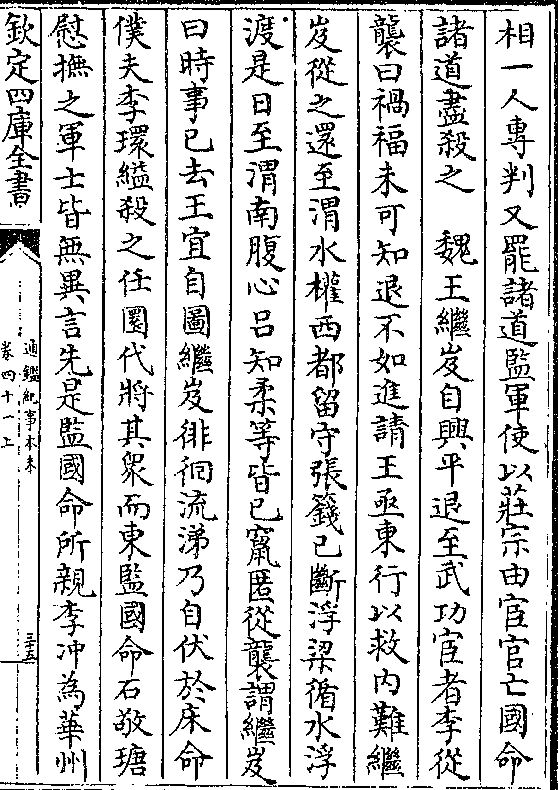 相一人專判又罷諸道監軍使以莊宗由宦官亡國命
諸道盡殺之　魏王繼岌自興平退至武功宦者李從
襲曰禍福未可知退不如進請王亟東行以救内難繼
岌從之還至渭水權西都留守張籛已斷浮梁循水浮
渡是日至渭南腹心吕知柔等皆已竄匿從襲謂繼岌
曰時事已去王宜自圖繼岌徘徊流涕乃自伏於床命
僕夫李環縊殺之任圜代將其衆而東監國命石敬瑭
慰撫之軍士皆無異言先是監國命所親李冲為華州
欽定四庫全書
通鑑紀事本末
卷四十一上
三十五